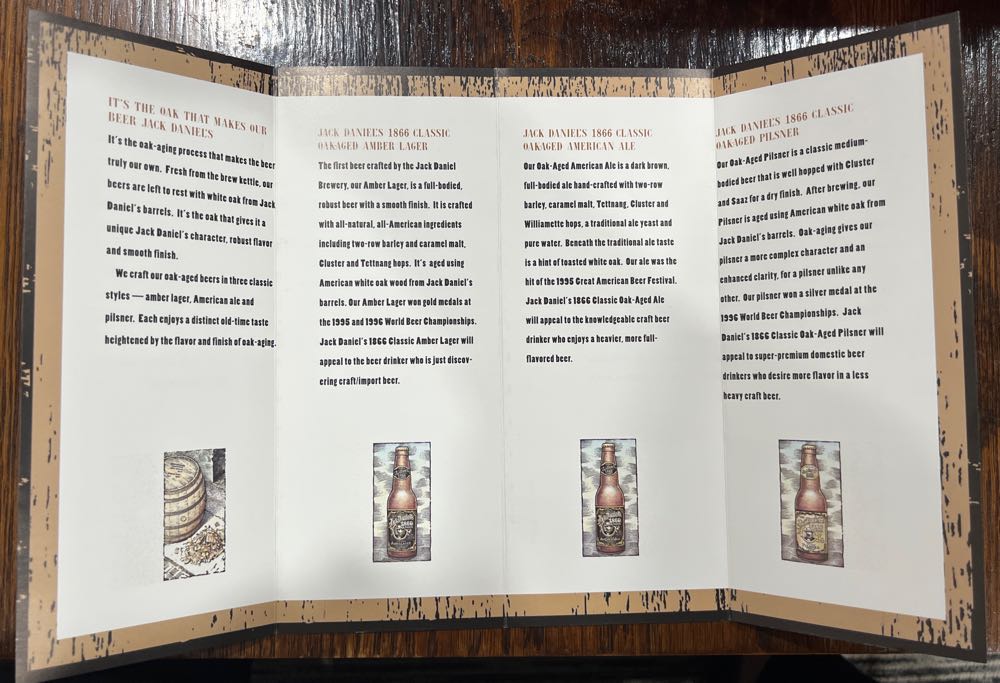 IT'S THE OAK THAT MAKES OUR
BEER JACK DANIEL'S
It's the oak-aging process that makes the beer
truly our own. Fresh from the brew kettle, our
beers are left to rest with white oak from Jack
Daniel's barrels. It's the oak that gives it a
unique Jack Daniel's character, robust flavor
and smooth finish.
We craft our oak-aged beers in three classic
styles — amber lager, American ale and
pilsner. Each enjoys a distinct old-time taste
heightened by the flavor and finish of oak-aging.
JACK DANIEL'S 1866 CLASSIC
OAK-AGED AMBER LAGER
The first beer crafted by the Jack Daniel
Brewery, our Amber Lager, is a full-bodied,
robust beer with a smooth finish. It is crafted
with all-natural, all-American ingredients
including two-row barley and caramel malt,
Cluster and Tettnang hops. It's aged using
American white oak wood from Jack Daniel's
barrels. Our Amber Lager won gold medals at
the 1995 and 1996 World Beer Championships.
Jack Daniel's 1866 Classic Amber Lager will
appeal to the beer drinker who is just discov-
ering craft/import beer.
JACK DANIEL'S 1866 CLASSIC
OAK-AGED AMERICAN ALE
Our Oak-Aged American Ale is a dark brown,
full-bodied ale hand-crafted with two-row
barley, caramel malt, Tettnang, Cluster and
Williamette hops, a traditional ale yeast and
pure water. Beneath the traditional ale taste
is a hint of toasted white oak. Our ale was the
hit of the 1995 Great American Beer Festival.
Jack Daniel's 1866 Classic Oak-Aged Ale
will appeal to the knowledgeable craft beer
drinker who enjoys a heavier, more full-
flavored beer.
JACK DANIEL'S 1866 CLASSIC
OAK-AGED PILSNER
Our Oak-Aged Pilsner is a classic medium-
bodied beer that is well hopped with Cluster
and Saaz for a dry finish. After brewing, our
Pilsner is aged using American white oak from
Jack Daniel's barrels. Oak-aging gives our
pilsner a more complex character and an
enhanced clarity, for a pilsner unlike any
other. Our pilsner won a silver medal at the
1996 World Beer Championships. Jack
Daniel's 1866 Classic Oak-Aged Pilsner will
appeal to super-premium domestic beer
drinkers who desire more flavor in a less
heavy craft beer.